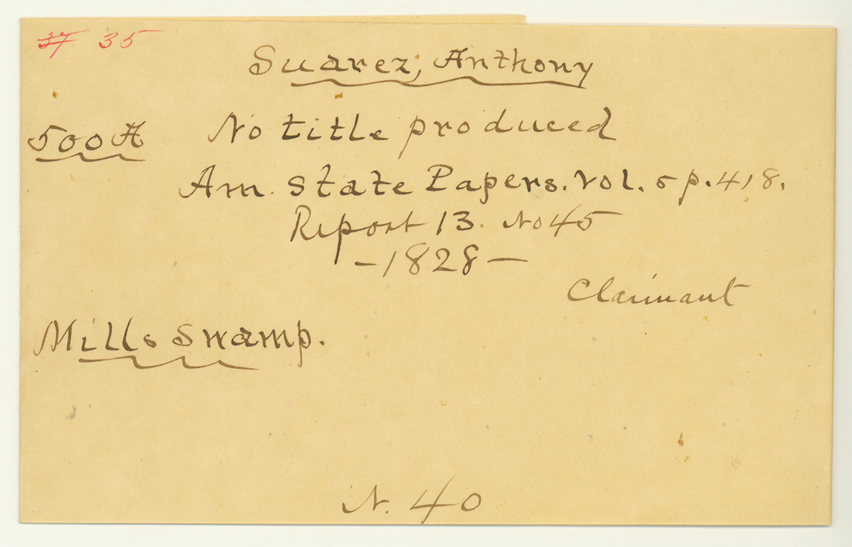 37 35
Suarez, Anthony
500 A No title produced
Am. State Papers. Vol. 5 p. 418.
Report 13. No 45
- 1828 -
Claimant
Mills Swamp.
N. 40